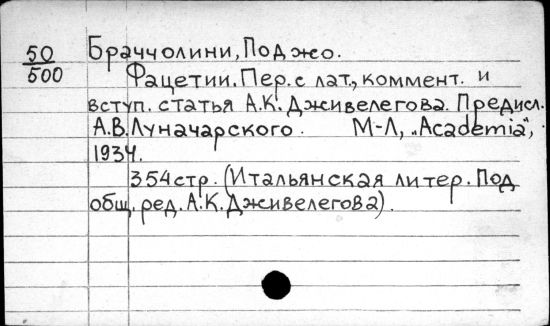 50
500
Браччолини, Поджо.
Фацетии. Пер. с лат., коммент. и
вступ. статья А.К. Дживелегова. Предисл.
А.В. Луначарского. М-Л, „Academia",
1934.
354 стр. (Итальянская литер. Под
общ. ред. А.К. Дживелегова).